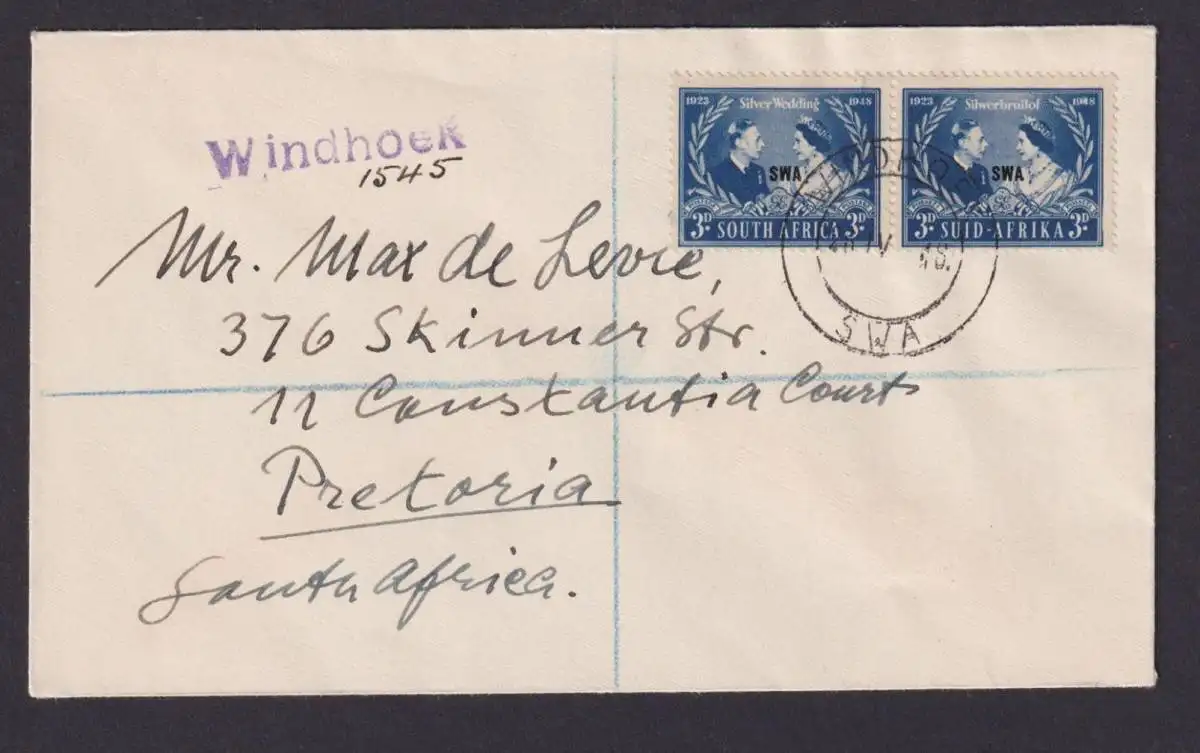 Windhoek
1545
1923 Silver Wedding 1948
SWA
3D SOUTH AFRICA 3D
1923 Silwerbruilof 1948
SWA
3D SUID-AFRIKA 3D
WINDHOEK
IV 48.
SWA
Mr. Max de Levie,
376 Skinner Str.
11 Constantia Courts
Pretoria
South Africa.